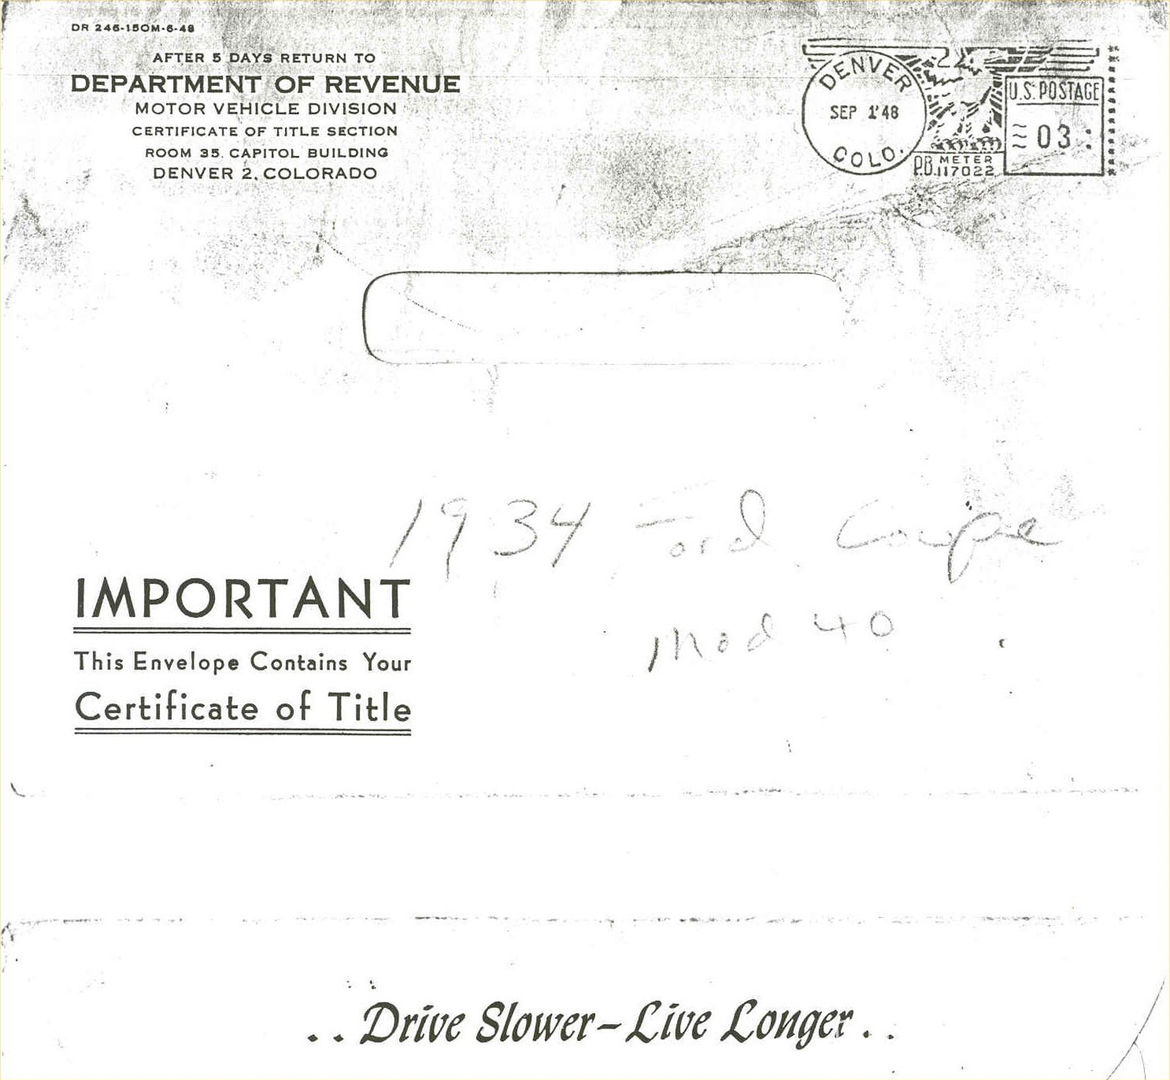 DR 246-150M-6-48
AFTER 5 DAYS RETURN TO
DEPARTMENT OF REVENUE
MOTOR VEHICLE DIVISION
CERTIFICATE OF TITLE SECTION
ROOM 35, CAPITOL BUILDING
DENVER 2, COLORADO
DENVER
SEP 1'48
COLO.
P.B. METER
117022
U.S. POSTAGE
03
1934 Ford Coupe
Mod 40
IMPORTANT
This Envelope Contains Your
Certificate of Title
..Drive Slower–Live Longer..